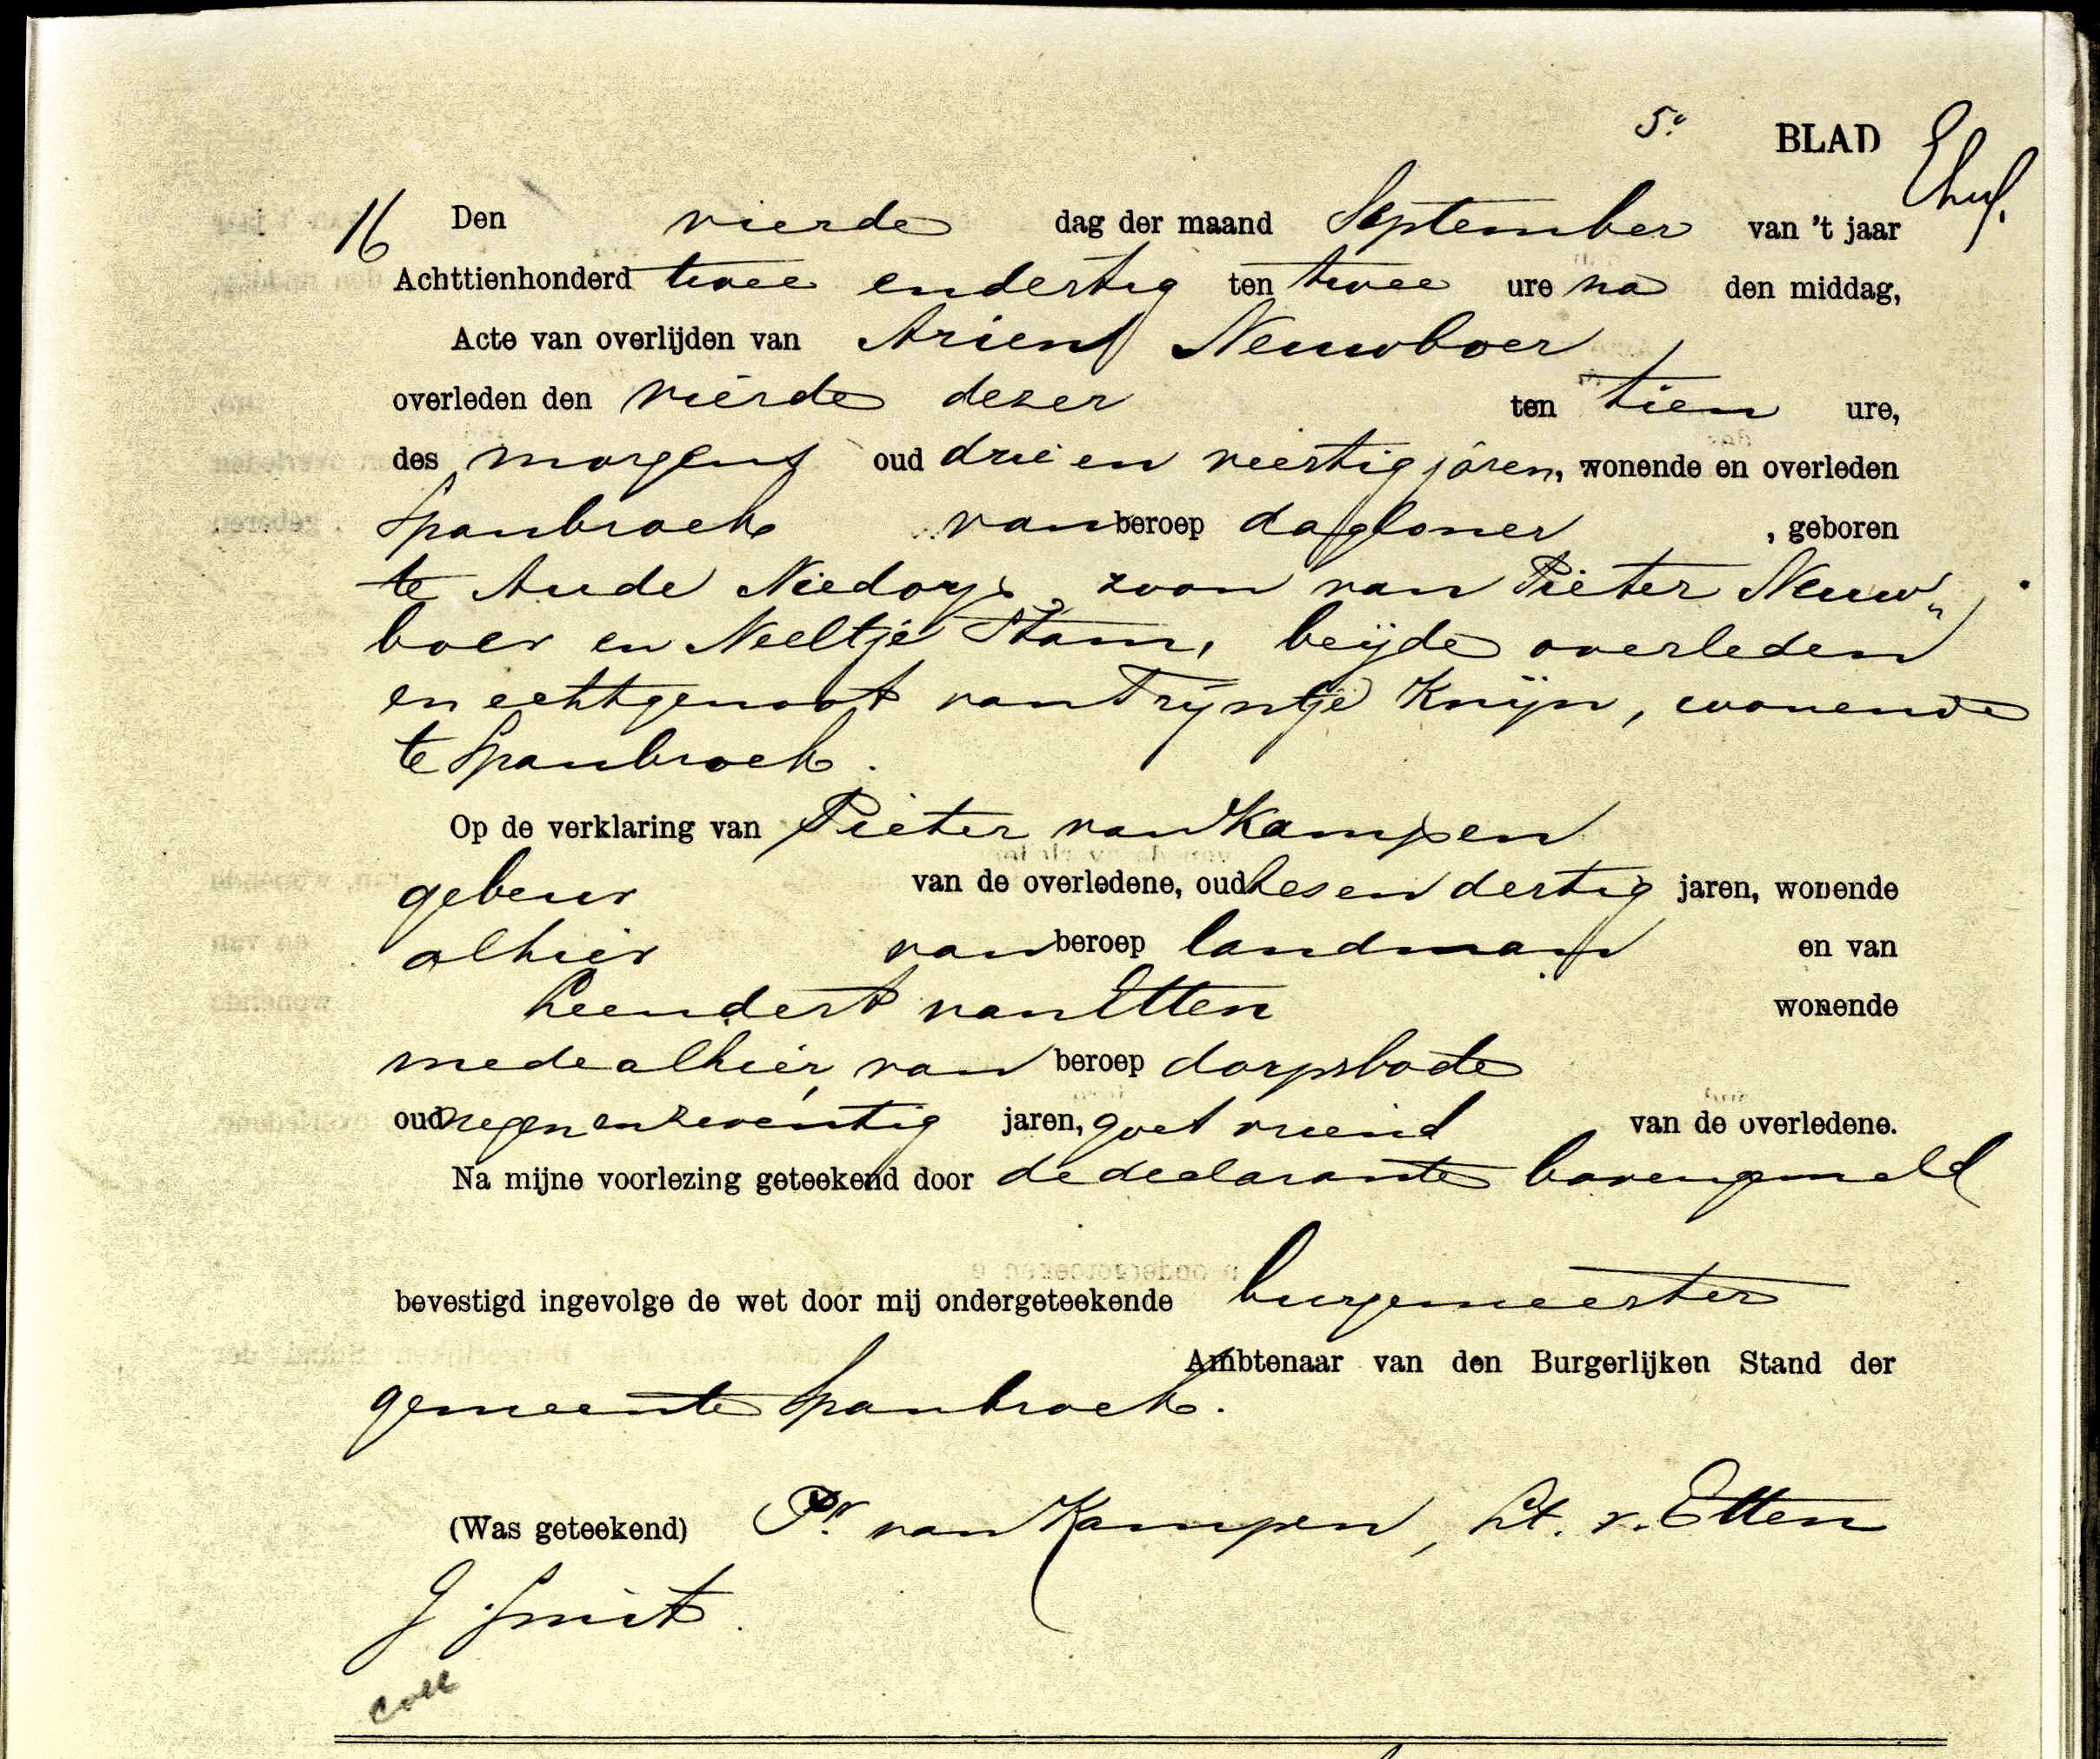 5e BLAD
16 Den vierde dag der maand September van 't jaar
Achttienhonderd twee endertig ten twee ure na den middag,
Acte van overlijden van Ariens Neuwboer
overleden den vierde dezer ten tien ure,
des morgens oud drie en veertig jaren, wonende en overleden
Spanbroek van beroep dagloner, geboren
te Aude Niedorp, zoon van Pieter Neuw„
boer en Neeltje Stam, beijde overleden
en echtgenoot van Trijntje Knijn, wonende
te Spanbroek.
Op de verklaring van Pieter van Kampen
gebeur van de overledene, oud zes en dertig jaren, wonende
alhier van beroep landman en van
Leendert van Etten wonende
mede alhier, van beroep dorpsbode
oud negen en zeventig jaren, goet vriend van de overledene.
Na mijne voorlezing geteekend door de declarante bovengemeld
bevestigd ingevolge de wet door mij ondergeteekende burgemeester
Ambtenaar van den Burgerlijken Stand der
gemeente Spanbroek.
(Was geteekend) Pr. van Kampen, Lt. v. Etten
J Smit.
coll